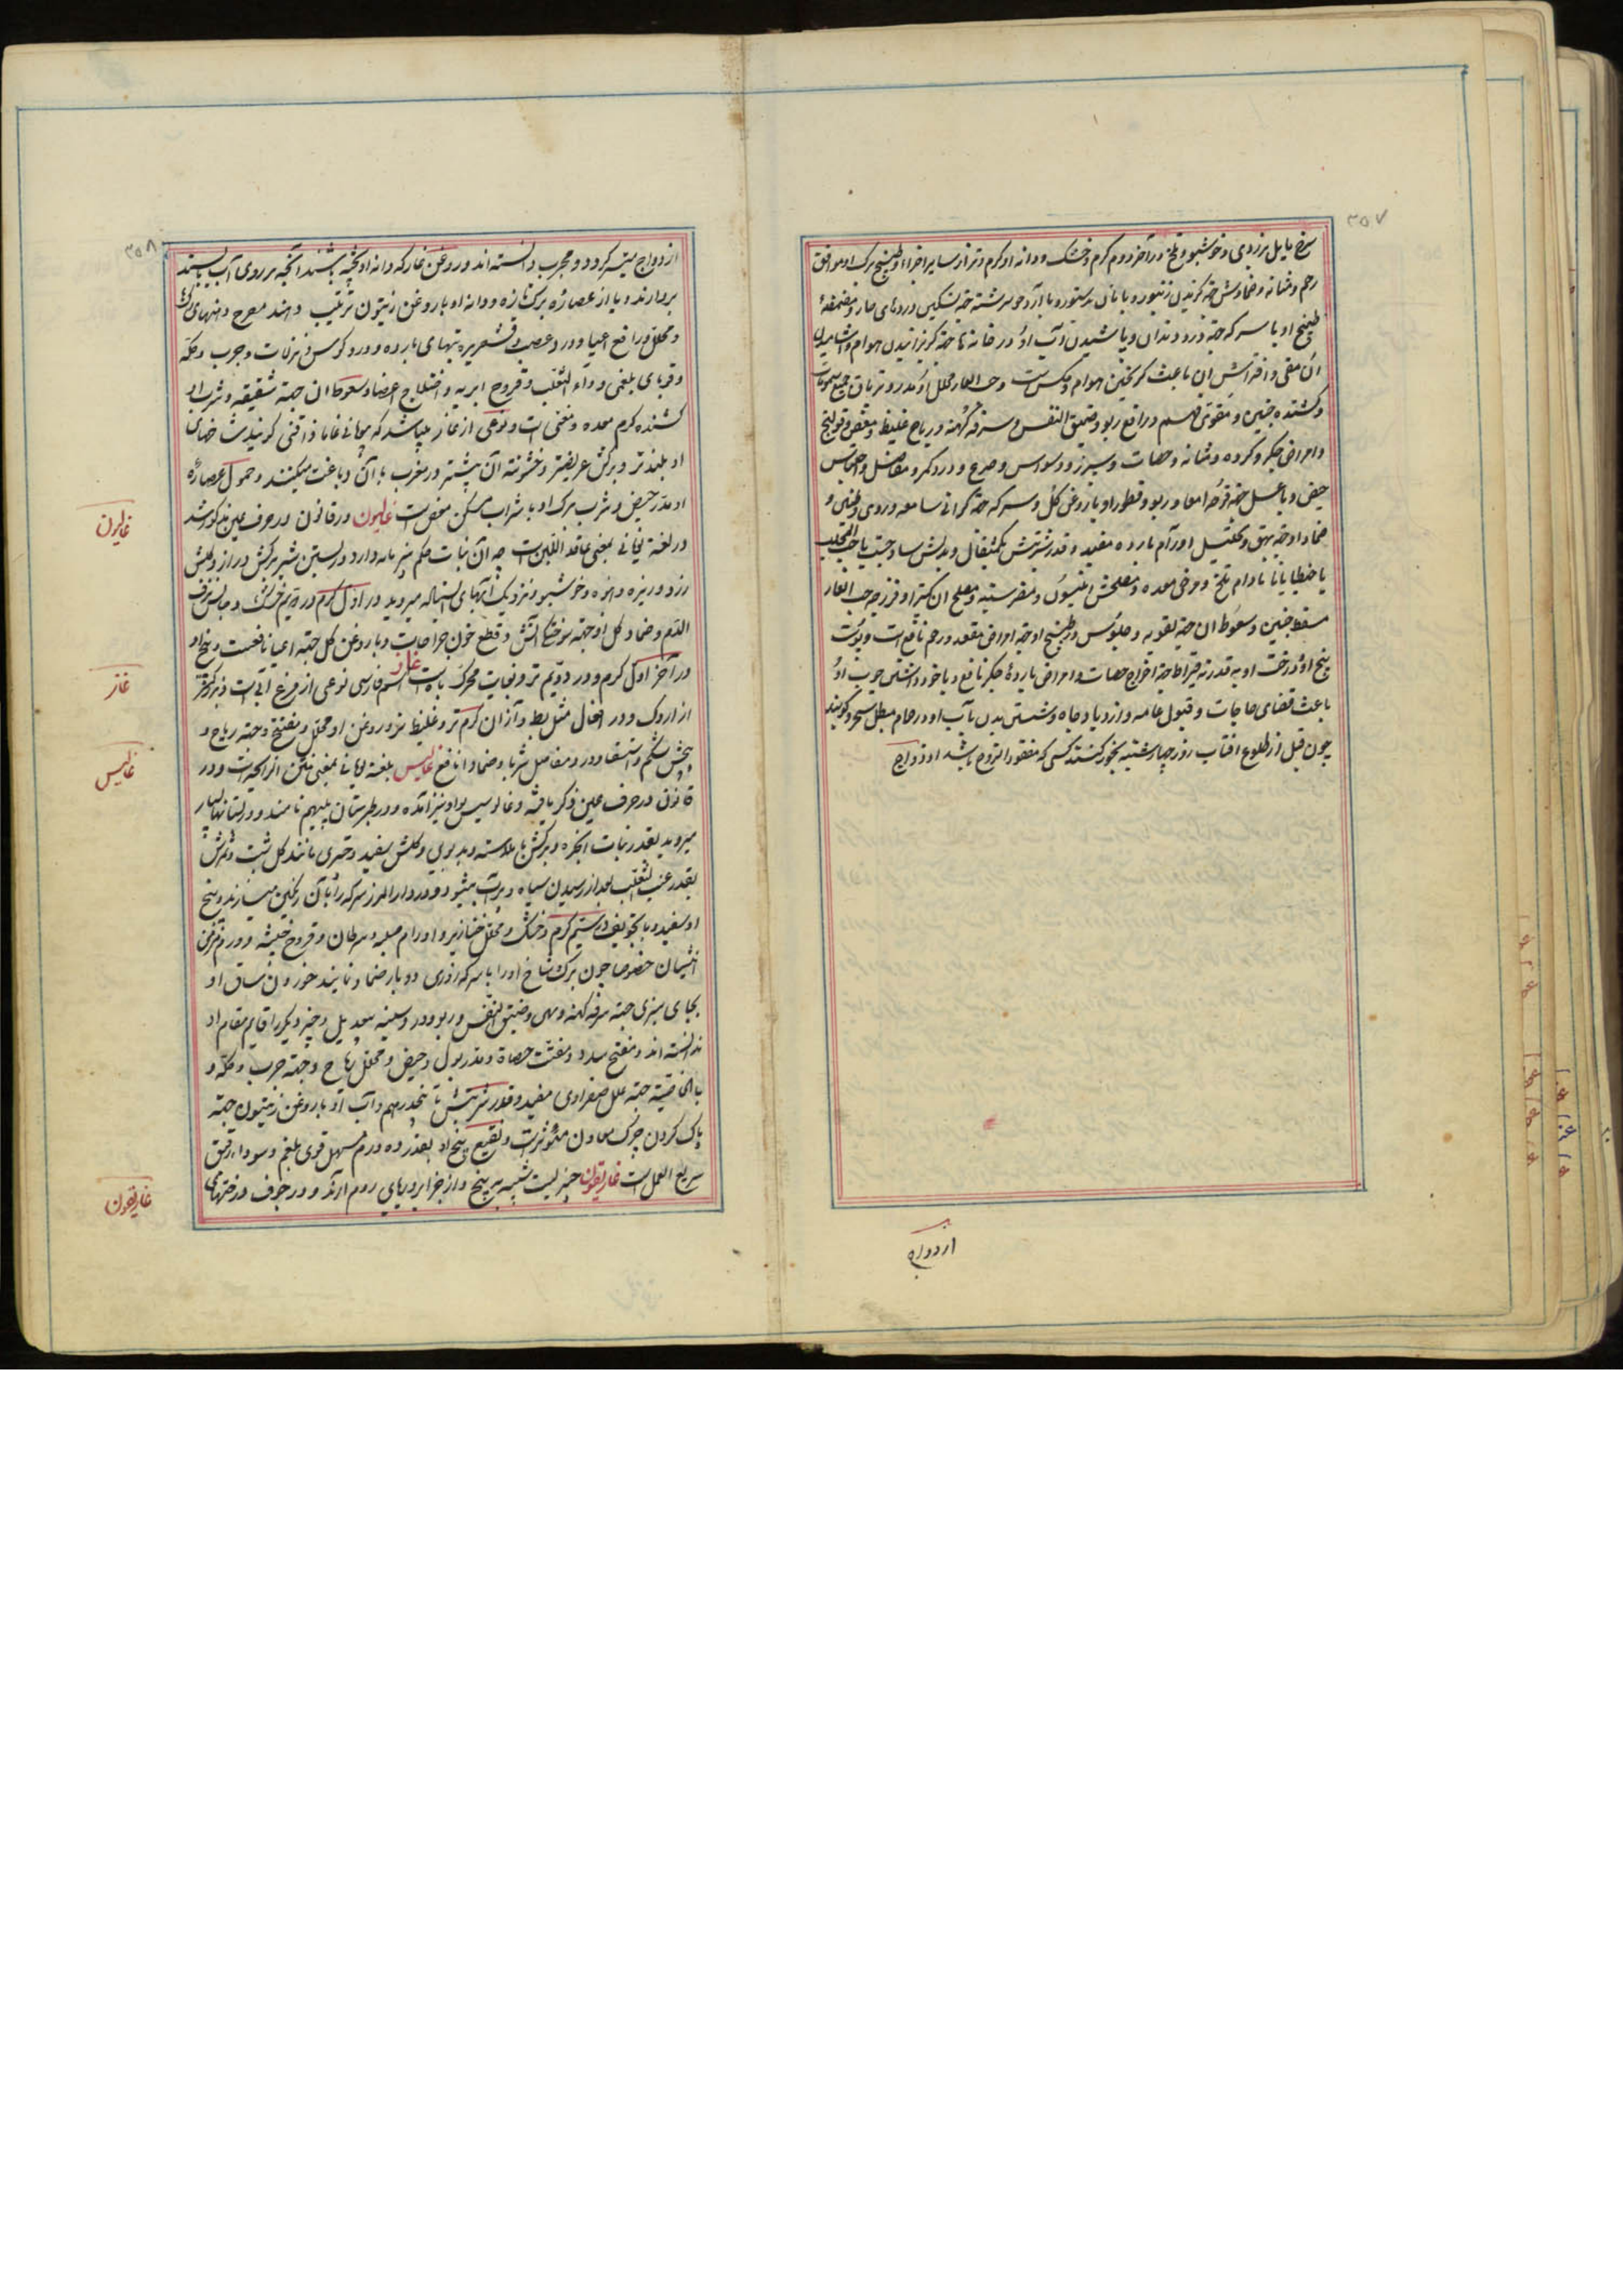 ۳۵۷
سرخ مایل بزردی و خوشبو و تلخ در آخر دوم گرم و خشک و دانه او گرم و تر از سایر اجزاء و طبیخ برک او موافق
رحم و مثانه و ضمادش جهة گزیدن زنبور و با نان بدستور و با آرد جو سرشته جهة تسکین دردهای حار و مضمضهٔ
طبیخ او با سرکه جهة درد دندان و پاشیدن آب او در خانه‌ها جهة گریزانیدن هوام و آشامیدن
آن مقی و افتراش آن باعث گریختن هوام و مکس است و حب الغار محلل و مدر و تریاق جمیع سموم
و کشنده جنین و مقوی فهم و رافع ربو و ضیق النفس و سرفه کهنه و ریاح غلیظ و مغص و قولنج
و امراض جکر و کرده و مثانه و حصات و سپرز و وسواس و صرع و درد کمر و مفاصل و احتباس
حیض و با عسل جهة قرحه امعا و ربو و قطور او با روغن کل و سرکه جهة کرانی سامعه و دوی و طنین و
ضماد او جهة بهق و تحلیل اورام بارده مفید و قدر شربتش یکمثقال و بدلش ساذج یا حب المحلب
یا جنطیانا یا بادام تلخ و مرخی معده و مصلحش انیسون و مضر سینه و مصلح آن کتیرا و فرزجه حب الغار
مسقط جنین و سعوط آن جهة لقوه و جلوس در طبیخ او جهة امراض مقعد و رحم نافع است و پوست
بیخ او و درخت او بقدر نه قیراط جهة اخراج حصات و امراض بارده جکر نافع و با خود داشتن چوب او
باعث قضای حاجات و قبول عامه و ازدیاد جاه و شستن بدن بآب او در حمام مبطل سحر و کویند
چون قبل از طلوع افتاب روز چهارشنبه بخور کنند کسی که مفقود التزوج باشد او تزواج
ازدواج
۳۵۸
ازدواج میسر کردد و مجرب دانسته‌اند و روغن غار که دانه او پخته باشند آنچه بر روی آب بایستد
بردارند و یا از عصاره برک تازه و دانه او با روغن زیتون ترتیب دهند
و محلل و رافع اعیا و درد عصب و قشعریره تبهای بارده و درد کوس و نزلات و جرب و حکه
و قوبای بلغمی و داء الثعلب و قروح ابریه و اختلاج اعضا و سعوط آن جهة شقیقه و شرب او
کشنده کرم معده و مغثی است و نوعی از غار میباشد که یونانی غاماذاقنی کویند شاخهای
او بلندتر و برکش عریضتر و خشونت آن بیشتر در مغرب بآن دباغت میکنند و حمول عصاره
او مدر حیض و شرب برک او با شراب مسکن مغص است غالیون در قانون در حرف عین مذکور شد
در لغة یونانی بمعنی عاقد اللبن است چه آن نبات حکم پنیر مایه دارد در بستن شیر برکش دراز و کلش
زرد و ریزه و انبوه و خوشبو و نزدیک آبهای ایستاده میروید در اول گرم و در دویم خشک و حابس نزف
الدم و ضماد کل او جهة سوختگی آتش و قطع خون جراحات و با روغن کل جهة اعیا نافع است و بیخ او
در آخر اول گرم و در دویم تر و بغایت محرک باه است غاز اسم فارسی نوعی از مرغ آبی است بزرکتر
از اردک و در افعال مثل بط و از آن گرم‌تر و غلیظ‌تر و روغن او محلل و مفتح و جهة ریاح و
پیچش شکم و استسقا و درد مفاصل شربا و ضمادا نافع غالیس بلغة یونانی بمعنی منتن الرایحه است و در
قانون در حرف عین ذکر یافته و غالوسیس بواو نیز آمده و در طبرستان پلهم نامند و در بستانها بسیار
میروید بقدر نبات انجره و برکش با ملاسته و بدبوی و کلش سفید و چتری مانند کل شبت و ثمرش
بقدر عنب الثعلب بعد از رسیدن سیاه و پرآب میشود و در دارالمرز سرکه را بآن رنکین میسازند و بیخ
او سفید و با تجویف در سیم گرم و خشک و محلل خنازیر و اورام صلبه و سرطان و قروح خبیثه و ورم مزمن
انثیان خصوصا چون برک شاخ او را با سرکه روزی دو بار ضماد نمایند خوردن ساق او
بجای سبزی جهة سرفه کهنه و بهی و ضیق النفس و ربو و درد سینه بیعدیل و چیز دیگر را قایم مقام او
ندانسته‌اند و مفتح سدد و مفتت حصاة و مدر بول و حیض و محلل ریاح و جهة جرب و حکه و
بالخاصیة جهة علل صفراوی مفید و قدر شربتش تا پنجدرهم و آب او با روغن زیتون جهة
پاک کردن چرک معادن مؤثر است و نقیع بیخ او بقدر ده درم مسهل قوی بلغم و سودا برفق
سریع العمل است غاریقون چیزیست شبیه به بیخ و از جزایر دریای روم آرند و در جوف درختهای
غالیون
غاز
غالیس
غاریقون